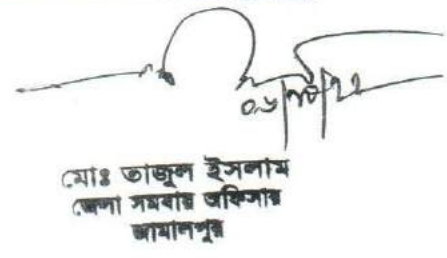 ০৬/১০/২২
মোঃ তাজুল ইসলাম
জেলা সমবায় অফিসার
জামালপুর